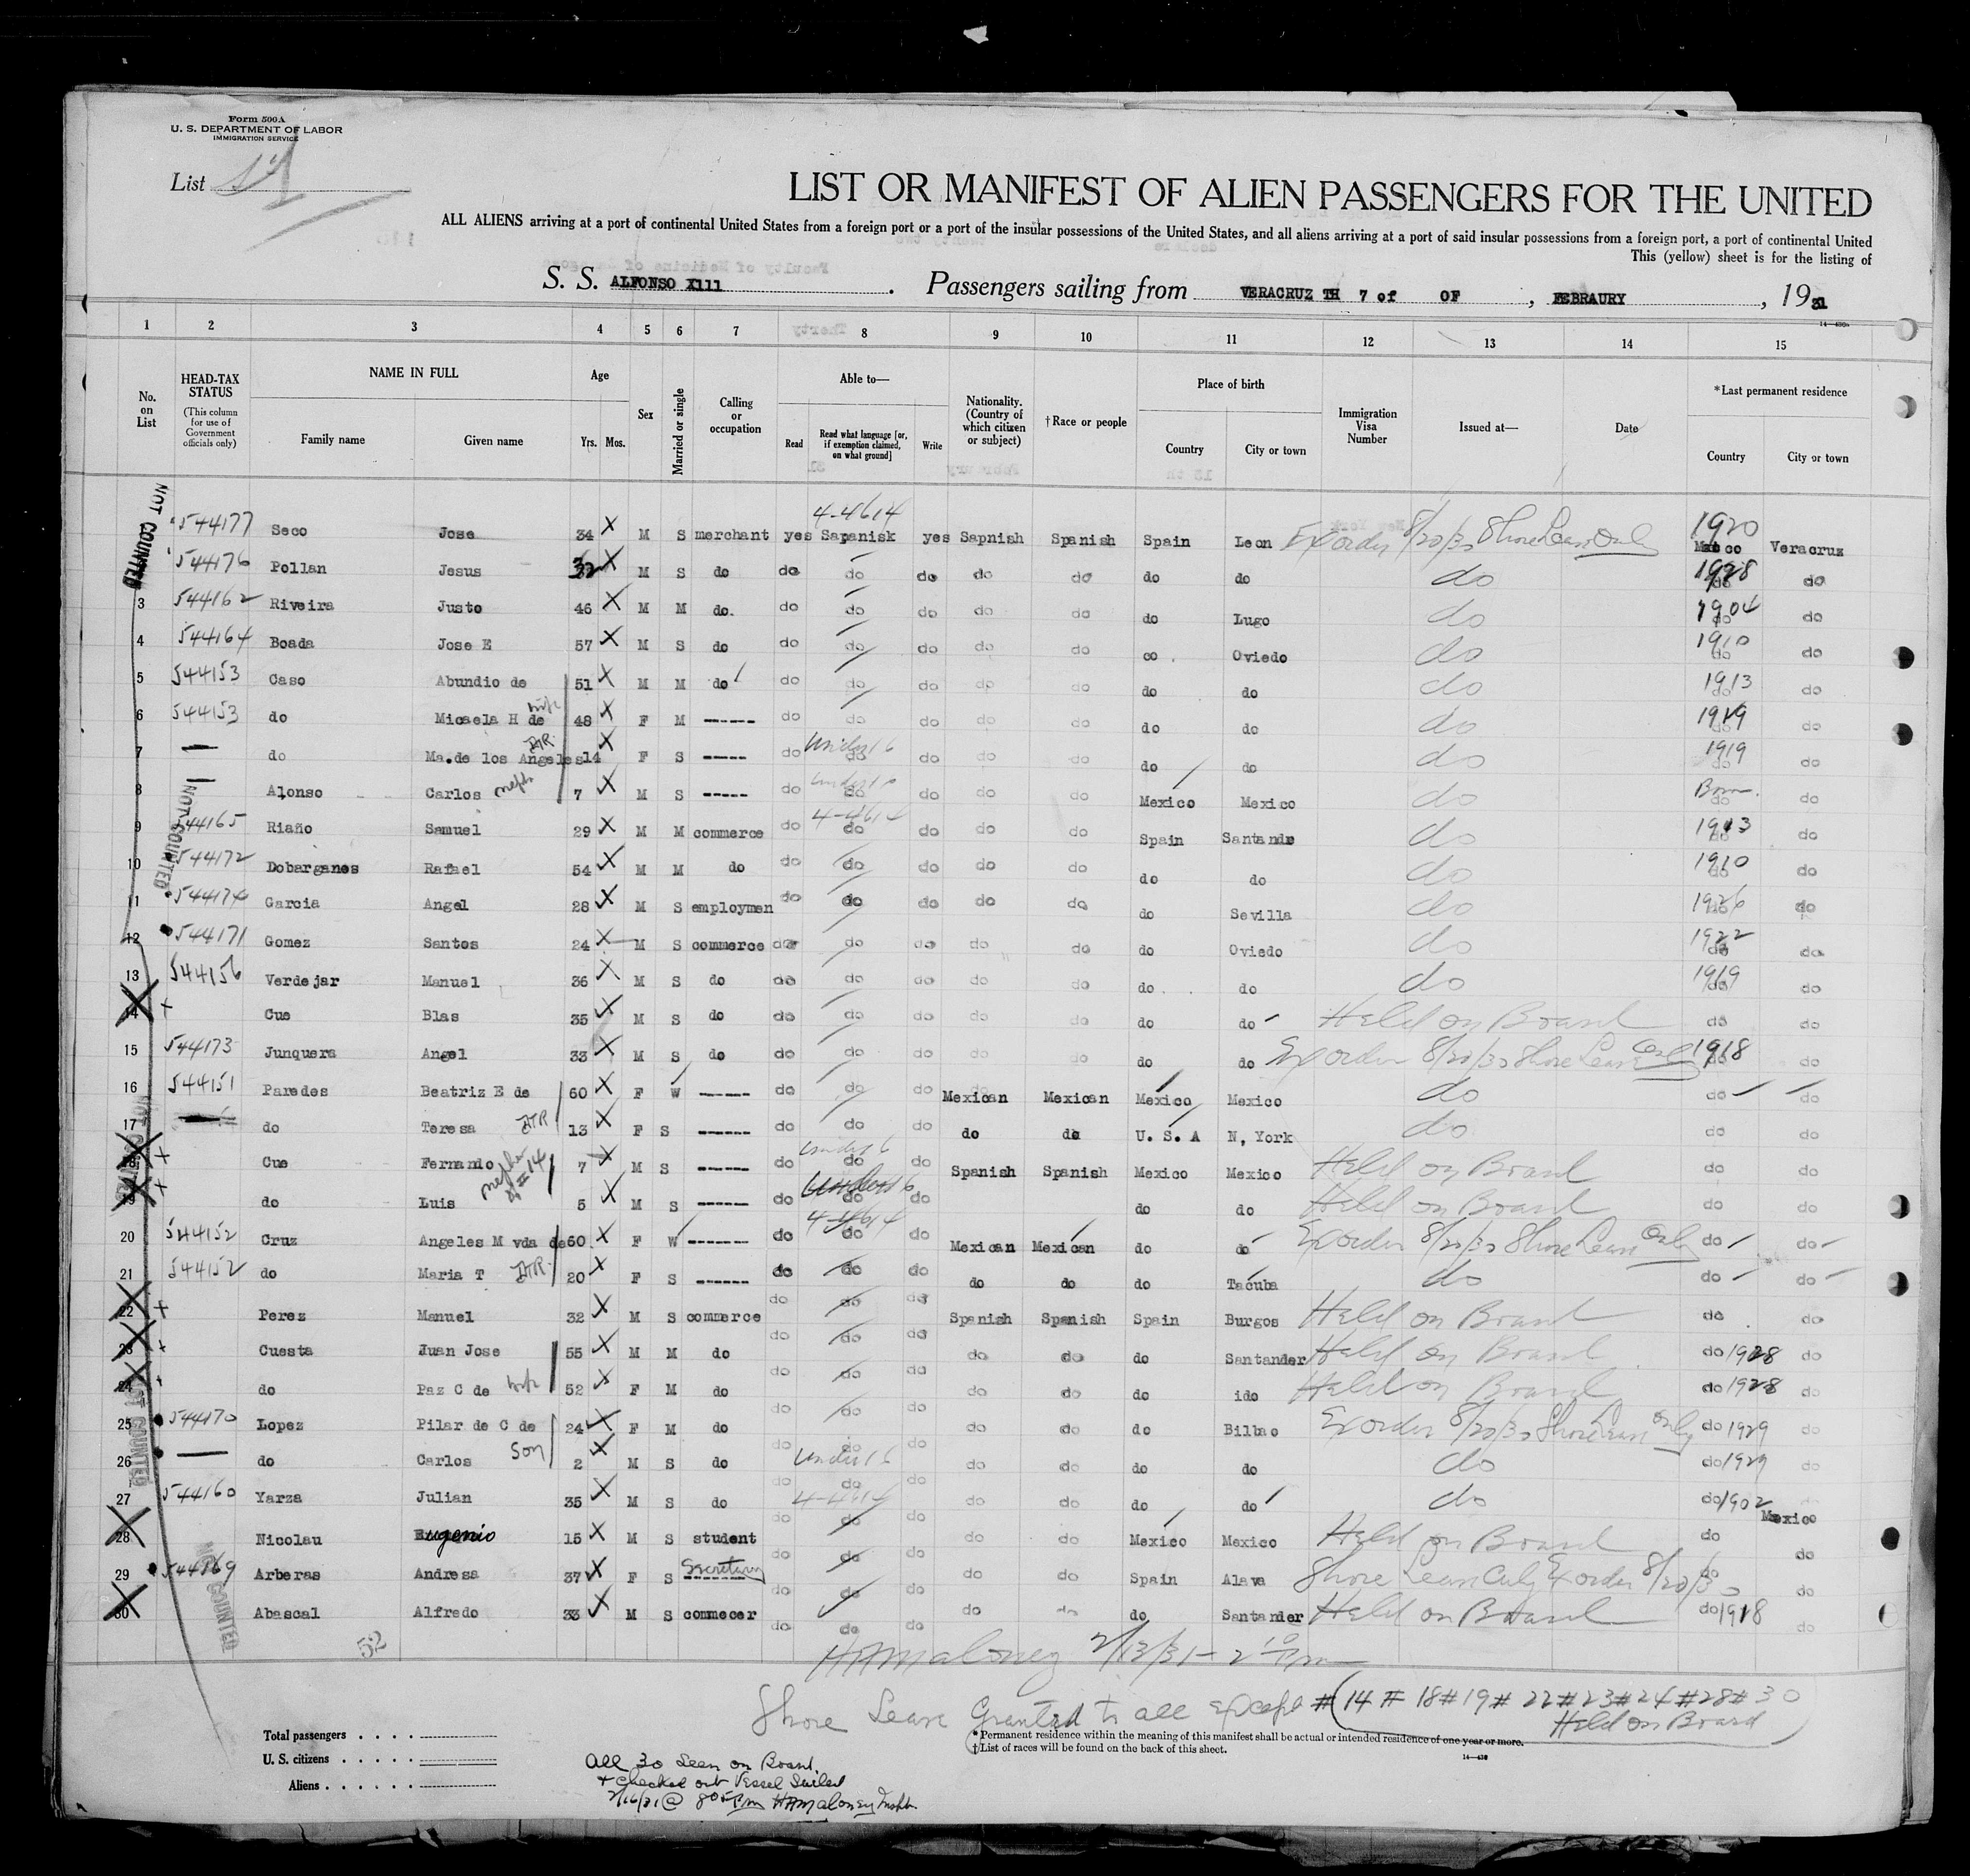 Form 500A
U. S. DEPARTMENT OF LABOR
IMMIGRATION SERVICE
List
LIST OR MANIFEST OF ALIEN PASSENGERS FOR THE UNITED
ALL ALIENS arriving at a port of continental United States from a foreign port or a port of the insular possessions of the United States, and all aliens arriving at a port of said insular possessions from a foreign port, a port of continental United
This (yellow) sheet is for the listing of
S. S. ALFONSO X111 . Passengers sailing from VERACRUZ TH 7 of OF , FEBRAURY , 19 31
1 2 3 4 5 6 7 8 9 10 11 12 13 14 15
No. on List
HEAD-TAX STATUS
(This column for use of Government officials only)
NAME IN FULL
Family name Given name
Age
Yrs. Mos.
Sex
Married or single
Calling or occupation
Able to—
Read
Read what language [or, if exemption claimed, on what ground]
Write
Nationality. (Country of which citizen or subject)
†Race or people
Place of birth
Country City or town
Immigration Visa Number
Issued at—
Date
*Last permanent residence
Country City or town
NOT COUNTED
4-4614
544177 Seco Jose 34 X M S merchant yes Sapanisk yes Sapnish Spanish Spain Leon Ex order 8/20/30 Shore Leave Only 1920 Veracruz
544176 Pollan Jesus X M S do do do do do do do do do 1928 do
3 544162 Riveira Justo 46 X M M do. do do do do do do Lugo do 1904 do do
4 544164 Boada Jose E 57 X M S do do do do do do co . Oviedo do 1910 do do
5 544153 Caso Abundio de 51 X M M do do do do do do do do do 1913 do do
6 544153 do Micaela H de wife 48 X F M ------ do do do do do do do do 1919 do do
7 — do Ma.de los Angeles 14 X F S ----- do under 16 do do do do do do do 1919 do do
8 — Alonso Carlos neph 7 X M S ----- do under 16 do do do do Mexico Mexico do Born do do
9 544165 Riaño Samuel 29 X M M commerce do 4-4614 do do do do Spain Santande do 1913 do do
10 544172 Dobarganes Rafael 54 X M M do do do do do do do do do 1910 do do
11 544174 Garcia Angel 28 X M S employmen do do do do do do Sevilla do 1926 do do
12 544171 Gomez Santos 24 X M S commerce do do do do do do Oviedo do 1922 do do
13 544156 Verdejar Manuel 36 X M S do do do do do do do do do 1919 do do
14 + Cue Blas 35 X M S do do do do do do do do Held on Board do do
15 544173 Junquera Angel 33 X M S do do do do do do do do Ex order 8/20/30 Shore Leave Only 1918 do do
16 544151 Paredes Beatriz E de 60 X F W ------ do do do Mexican Mexican Mexico Mexico do do do
17 do Teresa 13 X F S ------ do do do do do U. S. A N, York do do do
18 + Cue Fernando neph of #14 7 X M S ------ do under 16 do do Spanish Spanish Mexico Mexico Held on Board do do
19 + do Luis 5 X M S ------ do under 16 do do do do Held on Board do do
20 544152 Cruz Angeles M vda de 60 X F W ------- do 4-4614 do do Mexican Mexican do do Ex order 8/20/30 Shore Leave Only do do
21 544152 do Maria T 20 X F S ------ do do do do do do Tacuba do do do
22 + Perez Manuel 32 X M S commerce do do do Spanish Spanish Spain Burgos Held on Board do do
23 + Cuesta Juan Jose 55 X M M do do do do do do do Santander Held on Board do 1928 do
24 + do Paz C de wife 52 X F M do do do do do do do ido Held on Board do 1928 do
25 544170 Lopez Pilar de C de 24 X F M do do do do do do do Bilbao Ex order 8/20/30 Shore Leave Only do 1929 do
26 — do Carlos Son 2 X M S do do under 16 do do do do do do do do 1929 do
27 544160 Yarza Julian 35 X M S do do do 4-4614 do do do do do do do 1902
28 Nicolau Eugenio 15 X M S student do do do do Mexico Mexico Held on Board do Mexico do
29 544169 Arberas Andresa 37 X F S Secretary do do do do do Spain Alava Shore Leave Only Ex order 8/20/30 do do
30 Abascal Alfredo 33 X M S commecer do do do do do do Santander Held on Board do 1918 do
52
HAMaloney 2/13/31 – 2 10 Pm
Shore Leave Granted to all except #(14 # 18 # 19 # 22 # 23 # 24 # 28 # 30
Held on Board
Total passengers . . . .
U. S. citizens . . . . .
Aliens . . . . . .
*Permanent residence within the meaning of this manifest shall be actual or intended residence of one year or more.
†List of races will be found on the back of this sheet.
14—430
All 30 Seen on Board.
+ checked out Vessel Sailed
2/16/31 @ 8 05 Pm HAMaloney Inspt.